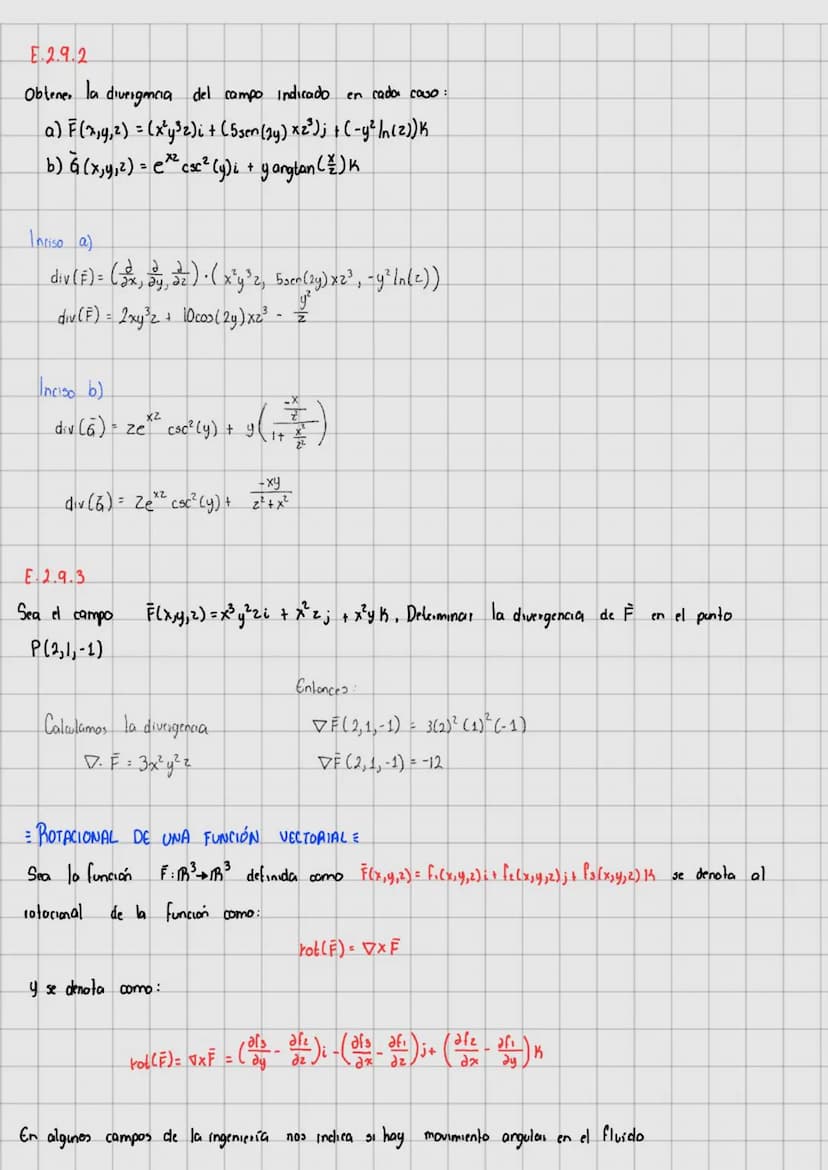 E.2.9.2
Obtener la divergencia del campo indicado en cada caso:
a) F̄(x,y,z) = (x²y³z)i + (5sen(2y)xz³)j + (-y² ln(z))k
b) Ḡ(x,y,z) = e^{xz} csc²(y)i + y angtan(x/z)k
Inciso a)
div(F̄) = (∂/∂x, ∂/∂y, ∂/∂z) · (x²y³z, 5sen(2y)xz³, -y² ln(z))
div(F̄) = 2xy³z + 10cos(2y)xz³ - y²/z
Inciso b)
div(Ḡ) = ze^{xz} csc²(y) + y((-x/z²)/(1 + x²/z²))
div(Ḡ) = ze^{xz} csc²(y) + -xy/(z²+x²)
E.2.9.3
Sea el campo F̄(x,y,z) = x³y²zi + x²zj + x²yk, Determinar la divergencia de F̄ en el punto
P(2,1,-1)
Calculamos la divergencia
∇· F̄ = 3x²y²z
Entonces:
∇F̄(2,1,-1) = 3(2)²(1)²(-1)
∇F̄(2,1,-1) = -12
ROTACIONAL DE UNA FUNCIÓN VECTORIAL
Sea la función F̄: ℝ³→ℝ³ definida como F̄(x,y,z) = f₁(x,y,z)i + f₂(x,y,z)j + f₃(x,y,z)k se denota al
rotacional de la función como:
rot(F̄) = ∇×F̄
y se denota como:
rot(F̄) = ∇×F̄ = (∂f₃/∂y - ∂f₂/∂z)i - (∂f₃/∂x - ∂f₁/∂z)j + (∂f₂/∂x - ∂f₁/∂y)k
En algunos campos de la ingeniería nos indica si hay movimiento angular en el fluido